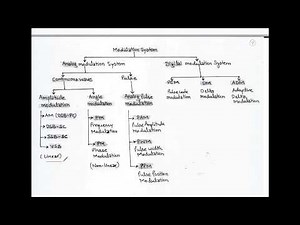 Modulation System
Analog modulation System
Digital modulation System
Continuous wave
Pulse
PCM
DM
ADM
Amplitude modulation
Angle modulation
Analog Pulse Modulation
Pulse code modulation
Delta modulation
Adaptive Delta modulation
DSB-SC
SSB-SC
VSB
(Linear)
FM
Frequency Modulation
PM
Phase Modulation
(Non-linear)
PAM
Pulse Amplitude Modulation
PWM
Pulse width Modulation
PPM
Pulse Position Modulation